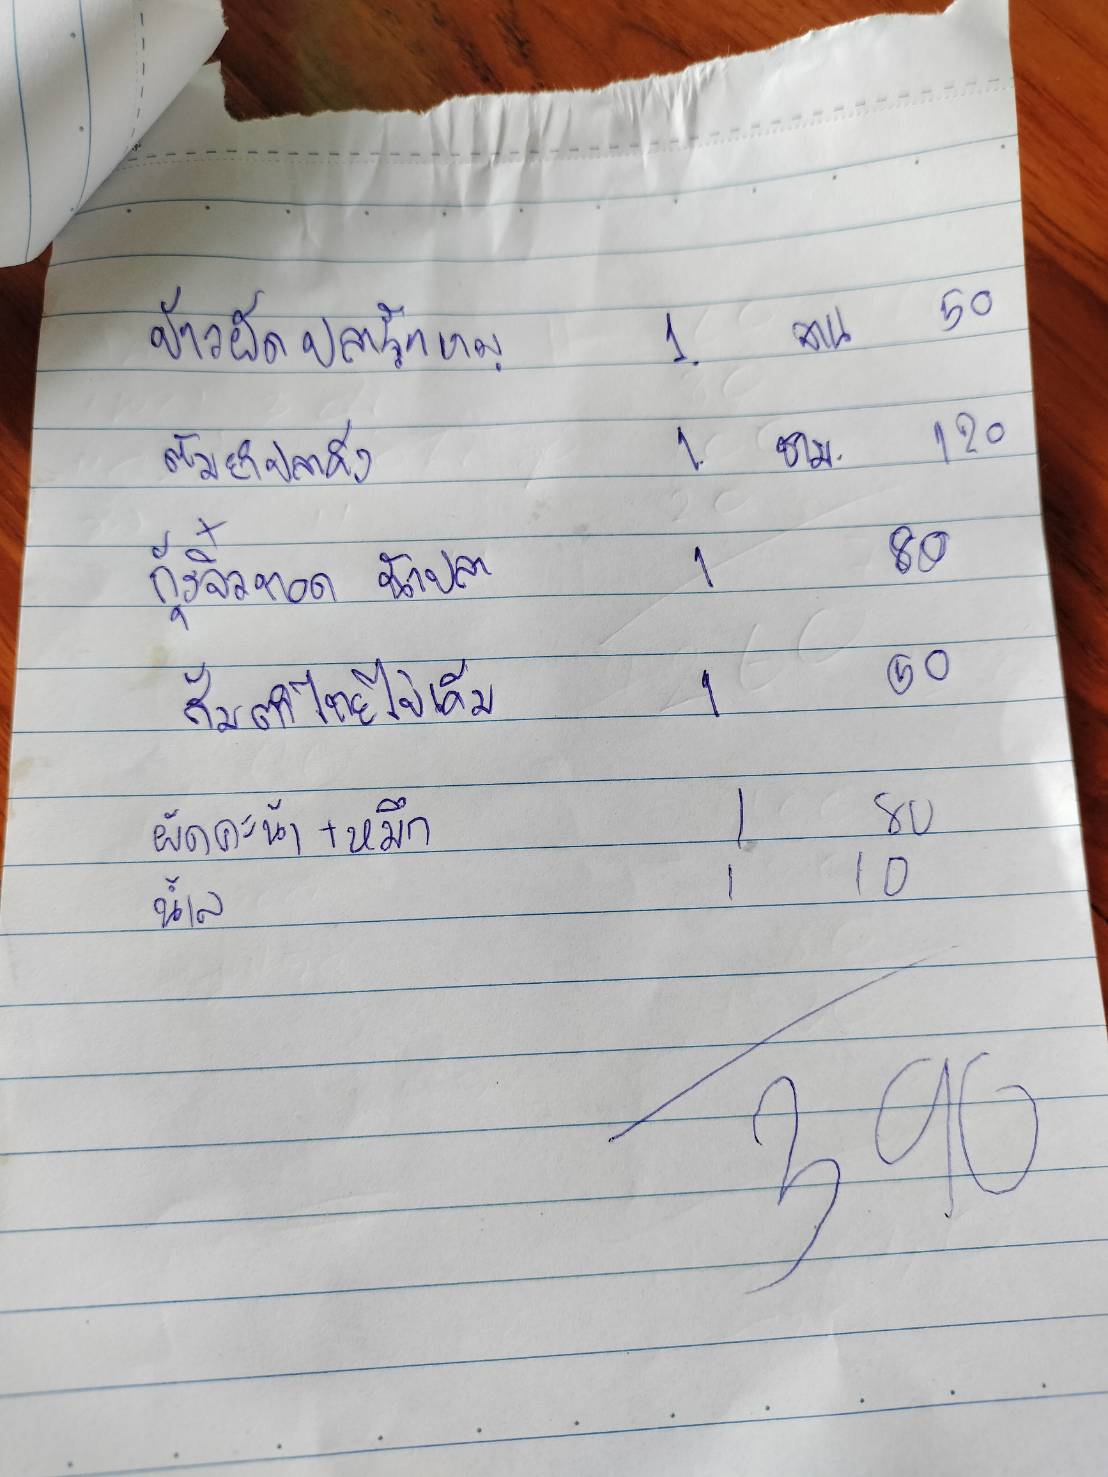 ข้าวผัด ปลาร้าหมู 1. จาน 50
ต้มยำปลาคัง 1. ชาม. 120
กุ้งจิ๋วทอด น้ำปลา 1 80
ส้มตำไทยไข่เค็ม 1 50
ผัดคะน้า + หมึก 1 80
น้ำเปล่า 1 10
390